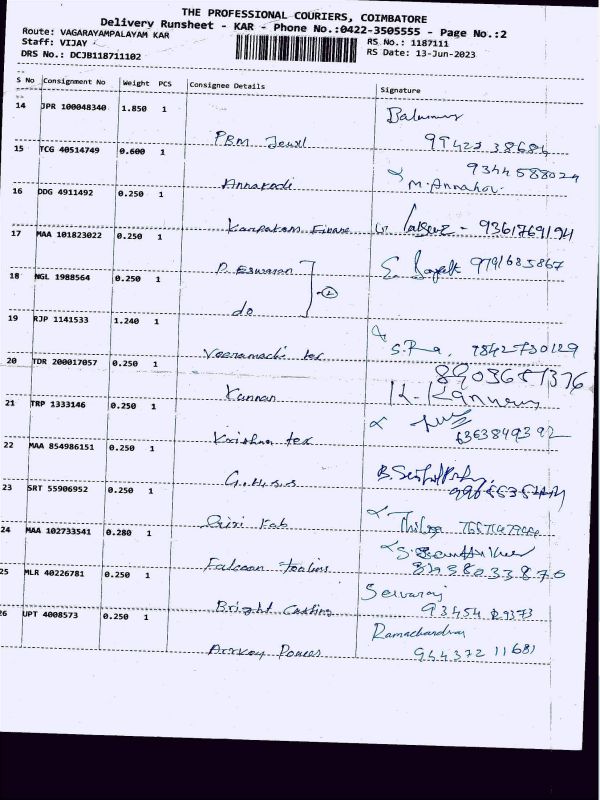 THE PROFESSIONAL COURIERS, COIMBATORE
Delivery Runsheet - KAR - Phone No.:0422-3505555 - Page No.:2
Route: VAGARAYAMPALAYAM KAR
Staff: VIJAY
RS No.: 1187111
DRS No.: DCJB118711102
RS Date: 13-Jun-2023
S No Consignment No Weight PCS Consignee Details Signature
14 JPR 100048340 1.850 1
PBM Jewl 99422 38684
15 TCG 40514749 0.600 1 9344588024
Annakodi M. Annakodi
16 DDG 4911492 0.250 1
Karpakam Finance - 9361769194
17 MAA 101823022 0.250 1
P. Eswaran 9791685867
18 NGL 1988564 0.250 1 2
do
19 RJP 1141533 1.240 1
tex 9842730129
20 TDR 200017057 0.250 1 8903681376
Kannan
21 TRP 1333146 0.250 1
Krishna tex 6363849392
22 MAA 854986151 0.250 1
G.H.S.S
23 SRT 55906952 0.250 1
24 MAA 102733541 0.280 1
25 MLR 40226781 0.250 1 Selvaraj
Bright Casting 93454 29373
26 UPT 4008573 0.250 1 Ramachandran
944372 11681